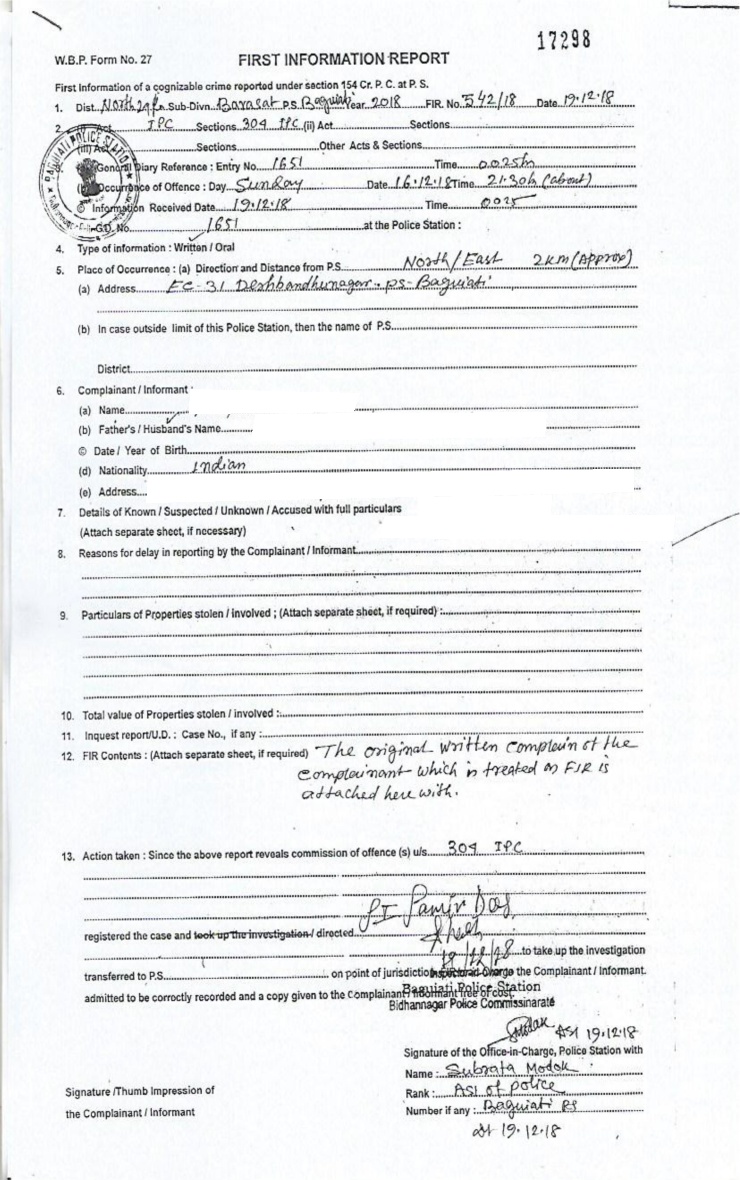 17298
W.B.P. Form No. 27 FIRST INFORMATION REPORT
First Information of a cognizable crime reported under section 154 Cr. P. C. at P. S.
1. Dist. North 24 Pn. Sub-Divn. Barasat P.S. Baguiati Year 2018 FIR. No. 542/18 Date 19.12.18
2. Act IPC Sections 304 IPC (ii) Act Sections
(iii) Act Sections Other Acts & Sections
General Diary Reference : Entry No. 1651 Time 0025h
Occurrence of Offence : Day Sunday Date 16.12.18 Time 21.30h (about)
© Information Received Date 19.12.18 Time 0025
G.D. No. 1651 at the Police Station :
BAGUIATI POLICE STATION
4. Type of information : Written / Oral
5. Place of Occurrence : (a) Direction and Distance from P.S. North/East 2 Km (Approx)
(a) Address EC-31 Deshbandhunagar. ps- Baguiati
(b) In case outside limit of this Police Station, then the name of P.S.
District
6. Complainant / Informant
(a) Name
(b) Father's / Husband's Name
© Date / Year of Birth
(d) Nationality Indian
(e) Address
7. Details of Known / Suspected / Unknown / Accused with full particulars
(Attach separate sheet, if necessary)
8. Reasons for delay in reporting by the Complainant / Informant
9. Particulars of Properties stolen / involved ; (Attach separate sheet, if required) :
10. Total value of Properties stolen / involved :
11. Inquest report/U.D. : Case No., if any :
12. FIR Contents : (Attach separate sheet, if required) The original written complein of the
complainant which is treated as FIR is
attached here with.
13. Action taken : Since the above report reveals commission of offence (s) u/s. 304 IPC
PI Samir Das
registered the case and took up the investigation / directed
19/12/18 to take up the investigation
transferred to P.S. on point of jurisdiction Inspector-in-Charge the Complainant / Informant.
admitted to be correctly recorded and a copy given to the Complainant / Informant free of cost.
Baguiati Police Station
Bidhannagar Police Commissinarate
ASI 19.12.18
Signature of the Office-in-Charge, Police Station with
Name : Subrata Modak
Signature /Thumb Impression of Rank : ASI of police
the Complainant / Informant Number if any : Baguiati PS
dt 19.12.18